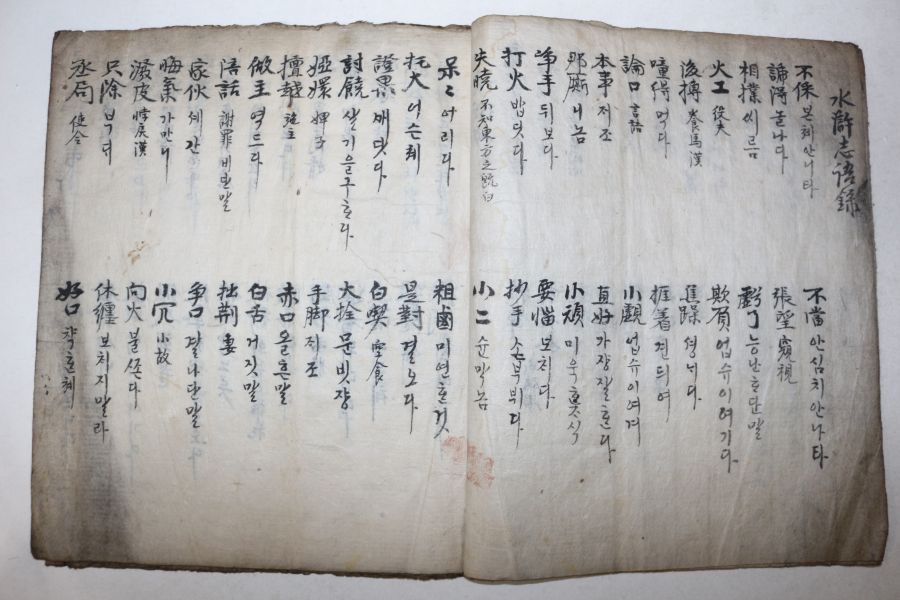 水滸志語錄
不保 본체안니타
諦得 놀나다
相撲 씨름
火工 役夫
後搏 養馬漢
噇得 먹다
論口 言語
本事 저조
那廝 니놈
爭手 뒤보다
打火 밥딧다
失曉 不知東方之旣白
不當 안심치안나타
張望 窺視
虧了 능난흐단말
欺負 업슈이여기다
焦躁 셩니다
捱着 견듸여
小覷 업슈이여겨
直好 가장잘흐다
小頑
要惱 보치다
抄手
小二 슌막놈
呆〻 어리다
托大 어슨쳬
證果 깨닷다
討饒 살기을구흐다
婭嬛 婢子
擅越 施主
做主 역드다
陪話 謝罪비단말
家伙 세간
晦氣 가만니
潑皮
只除
丞局 使令
粗鹵 미연흔것
是對 결오다
白喫 空食
大捨 문빗쟝
手脚 저조
赤口 올흔말
白舌 거짓말
拙荊 妻
爭口 달나단말
小冗 小故
向火 불쏜다
休纏 보치지말라
好口 착흔체